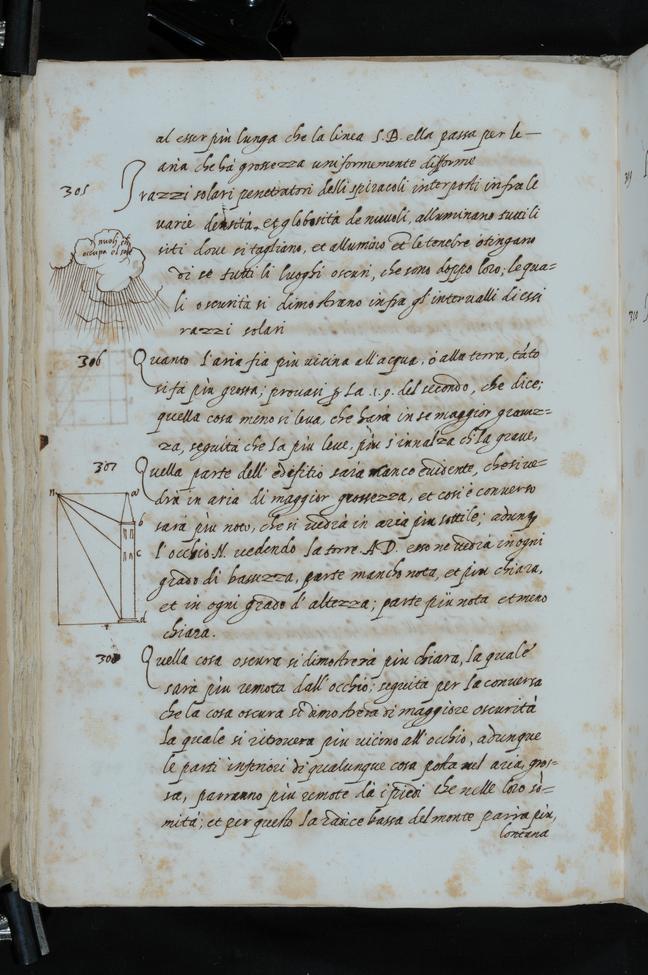 al esser più lunga che la linea S.B. ella passa per le—
aria che hà grossezza uniformemente difforme
305
I razzi solari penetratori delli spiracoli interposti infra le
varie densità, et globosità de nuvoli, alluminano tutti li
siti dove si tagliano, et allumino et le tenebre
di se tutti li luoghi oscuri, che sono doppo loro, le qua=
li oscurità si dimostrano infra gl' intervalli di essi
razzi solari
nuoli che
occupa el sole
306
Quanto l'aria fia più vicina all'acqua, ò alla terra, tãto
si fà più grossa; provasi p la .19. del secondo, che dice;
quella cosa meno si leva, che harà in se maggior gravez-
za, seguita che la più leve, più s'innalza ch̃ la grave,
307
Quella parte dell' edefitio sarà manco evidente, che si ve=
drà in aria di maggior grossezza, et cosi è converso
sarà più noto, che si vedrà in aria più sottile; adunq
l'occhio N. vedendo la torre A D. esso ne vedrà in ogni
grado di bassezza, parte mancho nota, et più chiara,
et in ogni grado d' altezza; parte più nota et meno
chiara.
n
a
b
c
d
308
Quella cosa oscura si dimostrerà più chiara, la quale
sarà più remota dall' occhio; seguita per la conversa
che la cosa oscura si dimostrerà di maggiore oscurità
la quale si ritrovera più vicino all' occhio, adunque
le parti inferiori di qualunque cosa posta nel aria, gros=
sa, parranno più remote dà i piedi che nelle loro sõ=
mità; et per questo la radice bassa del monte parrà più,
lontana